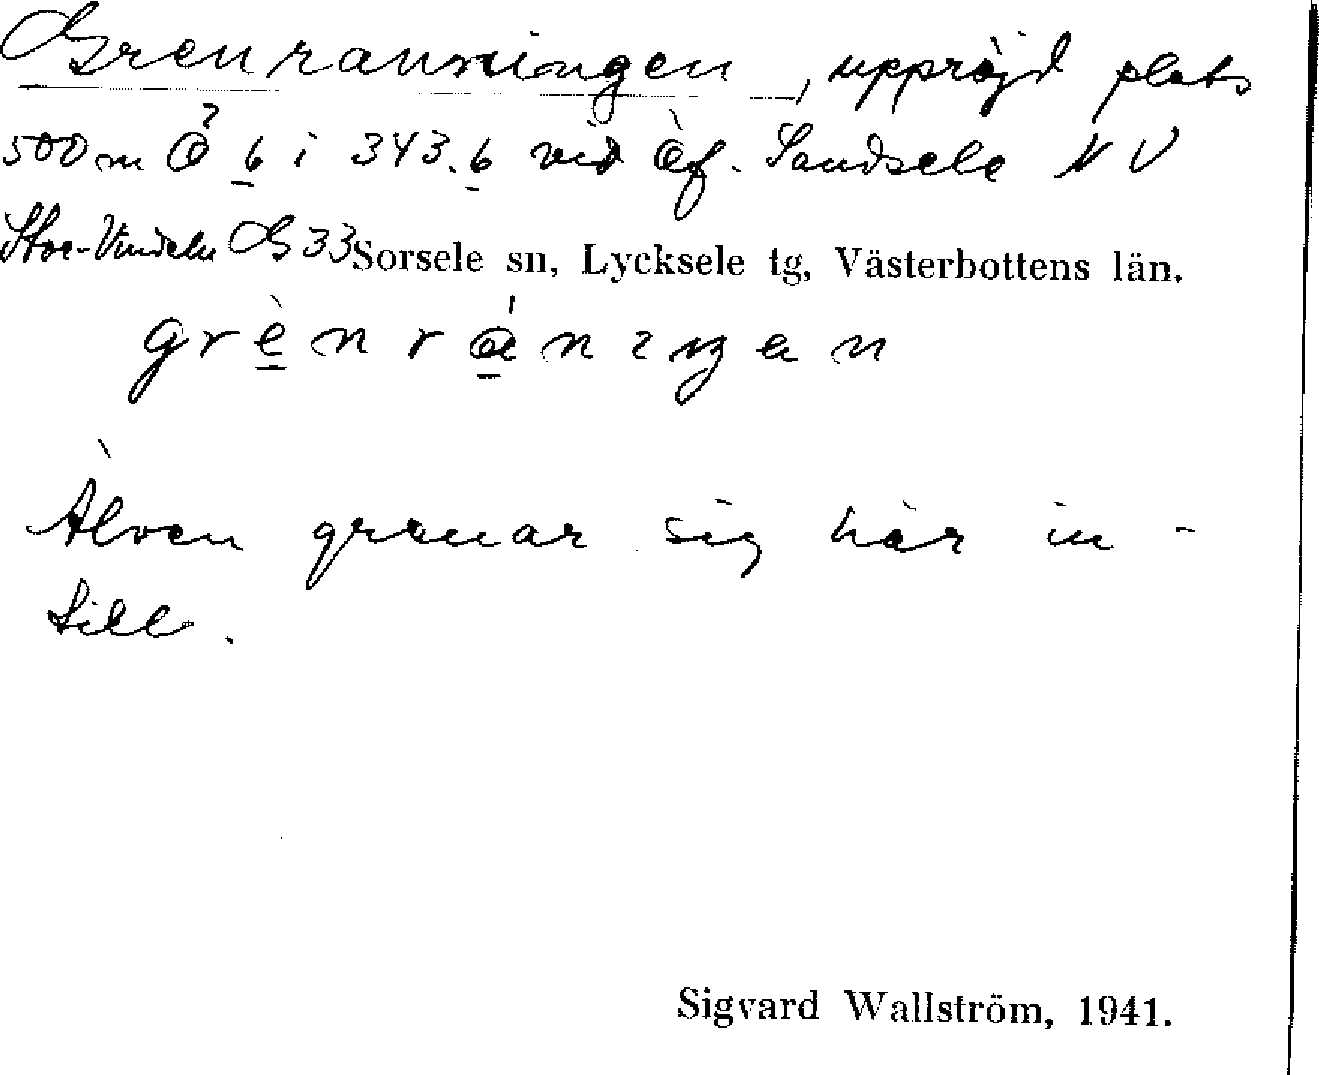 Grenranningen, uppröjd plats
500 m Ö 6 i 343.6 vid äf. Sandsele NV
Stor-Vindeln G 33 Sorsele sn, Lycksele tg, Västerbottens län.
grènráningan
Älven grenar sig här in-
till.
Sigvard Wallström, 1941.